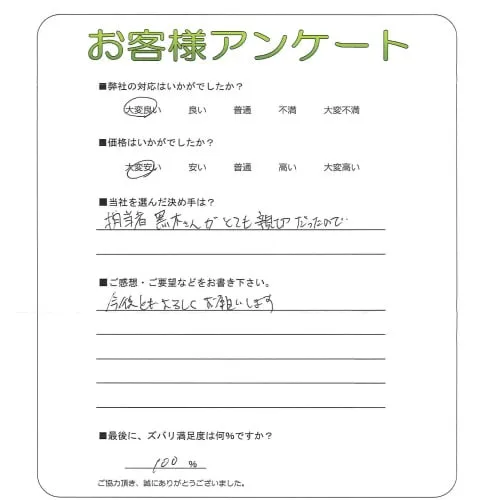 お客様アンケート
■弊社の対応はいかがでしたか？
大変良い 良い 普通 不満 大変不満
■価格はいかがでしたか？
大変安い 安い 普通 高い 大変高い
■当社を選んだ決め手は？
担当者 黒木さんがとても親切だったので…
■ご感想・ご要望などをお書き下さい。
今後ともよろしくお願いします
■最後に、ズバリ満足度は何％ですか？
100 %
ご協力頂き、誠にありがとうございました。